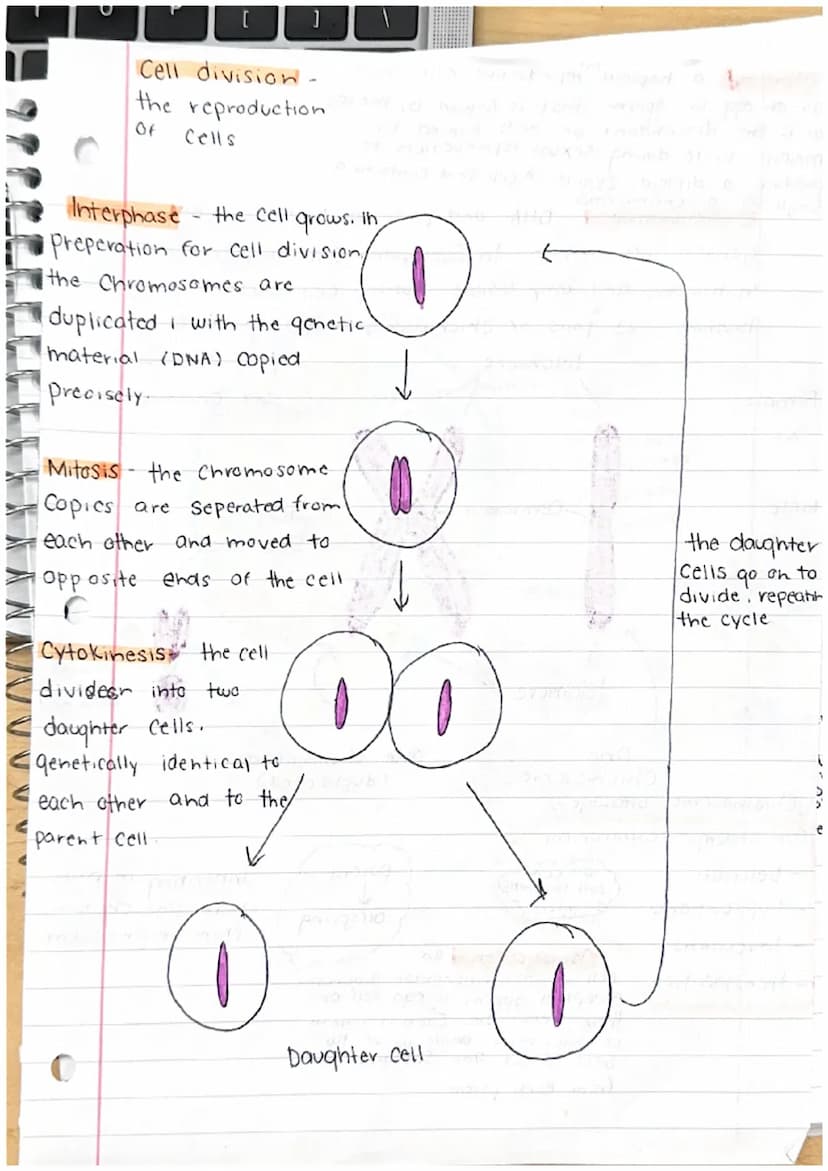 [
]
\
Cell division -
the reproduction
of cells
Interphase - the cell grows. In
preperation for cell division
the chromosomes are
duplicated, with the genetic
material (DNA) copied
precisely.
Mitosis - the chromosome
copies are seperated from
each other and moved to
opposite ends of the cell
the daughter
cells go on to
divide, repeatin
the cycle
Cytokinesis the cell
divides into two
daughter cells.
genetically identical to
each other and to the
parent cell.
Daughter cell